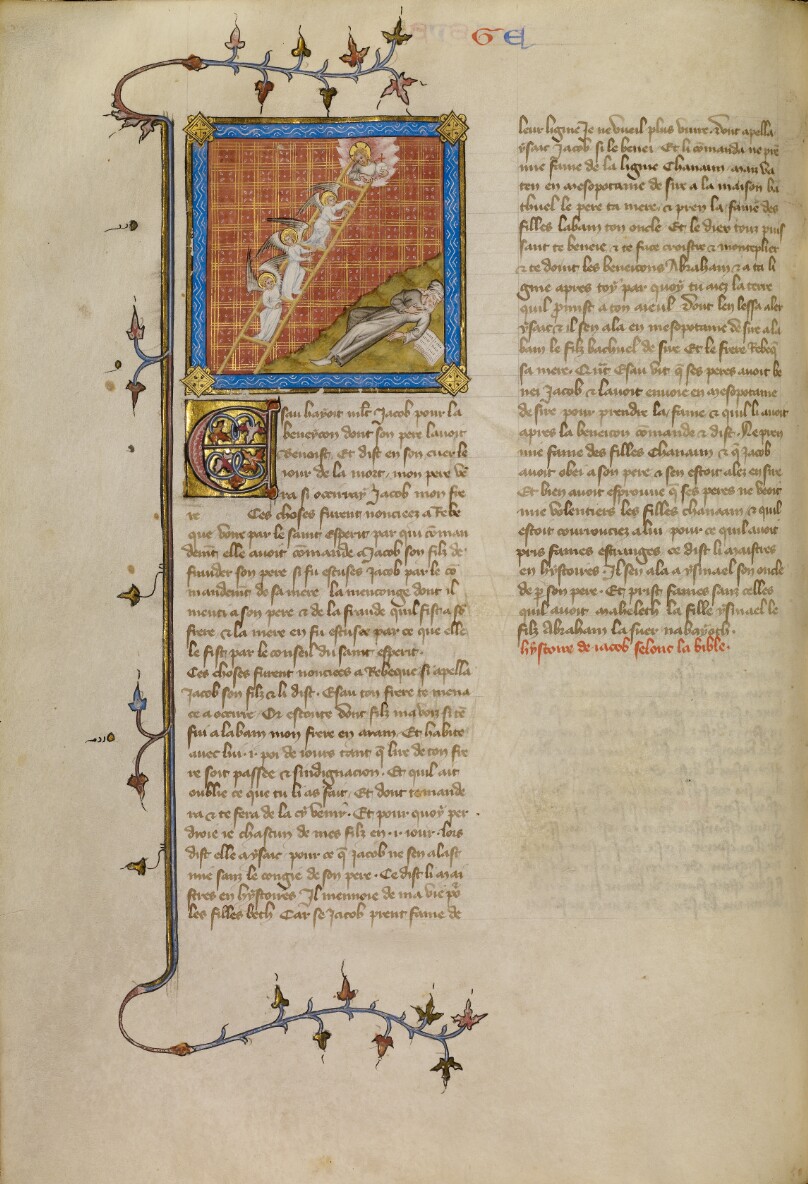 GE
Esau hayoit mlt Jacob pour la
beneycon dont son pere lavoit
benoist. Et dist en son cuer le
iour de la mort mon pere ve
ra si occirray Jacob mon fre
re Ces choses furent nonciees a Rebe
que voire par le saint esperit par qui coman
dement elle avoit comande a Jacob son filz de
frauder son pere si fu escuses Jacob par le co
mandement de sa mere la menconge dont il
menti a son pere & de la fraude quil fist a so
frere & la mere en fu escusee par ce que elle
le fist par le conseil du saint esperit.
Ces choses furent nonciees a Rebeque si apella
Jacob son filz & li dist. Esau ton frere te mena
ce a occirre Or escoute dont filz ma voiz si te
fui a labam mon frere en aram. Et habite
avec lui .i. poi de iours tant q lire de ton fre
re soit passee & sindignacion. Et quil ait
oublie ce que tu li as fait. Et dont te mande
ra & te fera de la cy venir. Et pour quoy per
droie ie chascun de mes filz en .i. iour. lois
dist elle a ysaac pour ce q Jacob ne sen alast
mie sanz le congie de son pere. Ce dist li mai
stres en hystoires Il mennoie de ma vie po
les filles heth Car se Jacob prent fame de
leur ligne Je ne vueil plus vivre. Dont apella
ysaac Jacob si le benei Et li comanda ne pre
mie fame de la ligne Chanaam mau va
ten en mesopotame de sire a la maison ba
thuel le pere ta mere & pren la fame des
filles labam ton oncle Et le dieu tout puis
sant te beneie & te face croistre & monteplier
& te doint les beneicons Abraham & a ta li
gnie apres toy par quoy tu aiez la terre
quil promist a ton aieul Dont len lessa aler
ysaac & il sen ala en mesopotame de sire a la
bam le filz bathuel de sire Et le frere Rebeq
sa mere. Quant Esau vit q ses peres avoit be
nei Jacob & lavoit envoie en mesopotame
de sire pour prendre la fame & quil li avoit
apres la beneicon comande & dist. Ne pren
mie fame des filles Chanaam & q Jacob
avoit obei a son pere & sen estoit alez en sire
Et bien avoit esprouve q ses peres ne veoit
mie volentiers les filles chanaam & quil
estoit courrouciez a lui pour ce quil avoit
pris fames estranges ce dist li maistres
en hystoires. Il sen ala a ysmael son oncle
de p son pere. Et prist fames sanz celles
quil avoit mabeleth la fille ysmael le
filz Abraham la suer nabayoth.
hystoire de iacob selonc la bible.